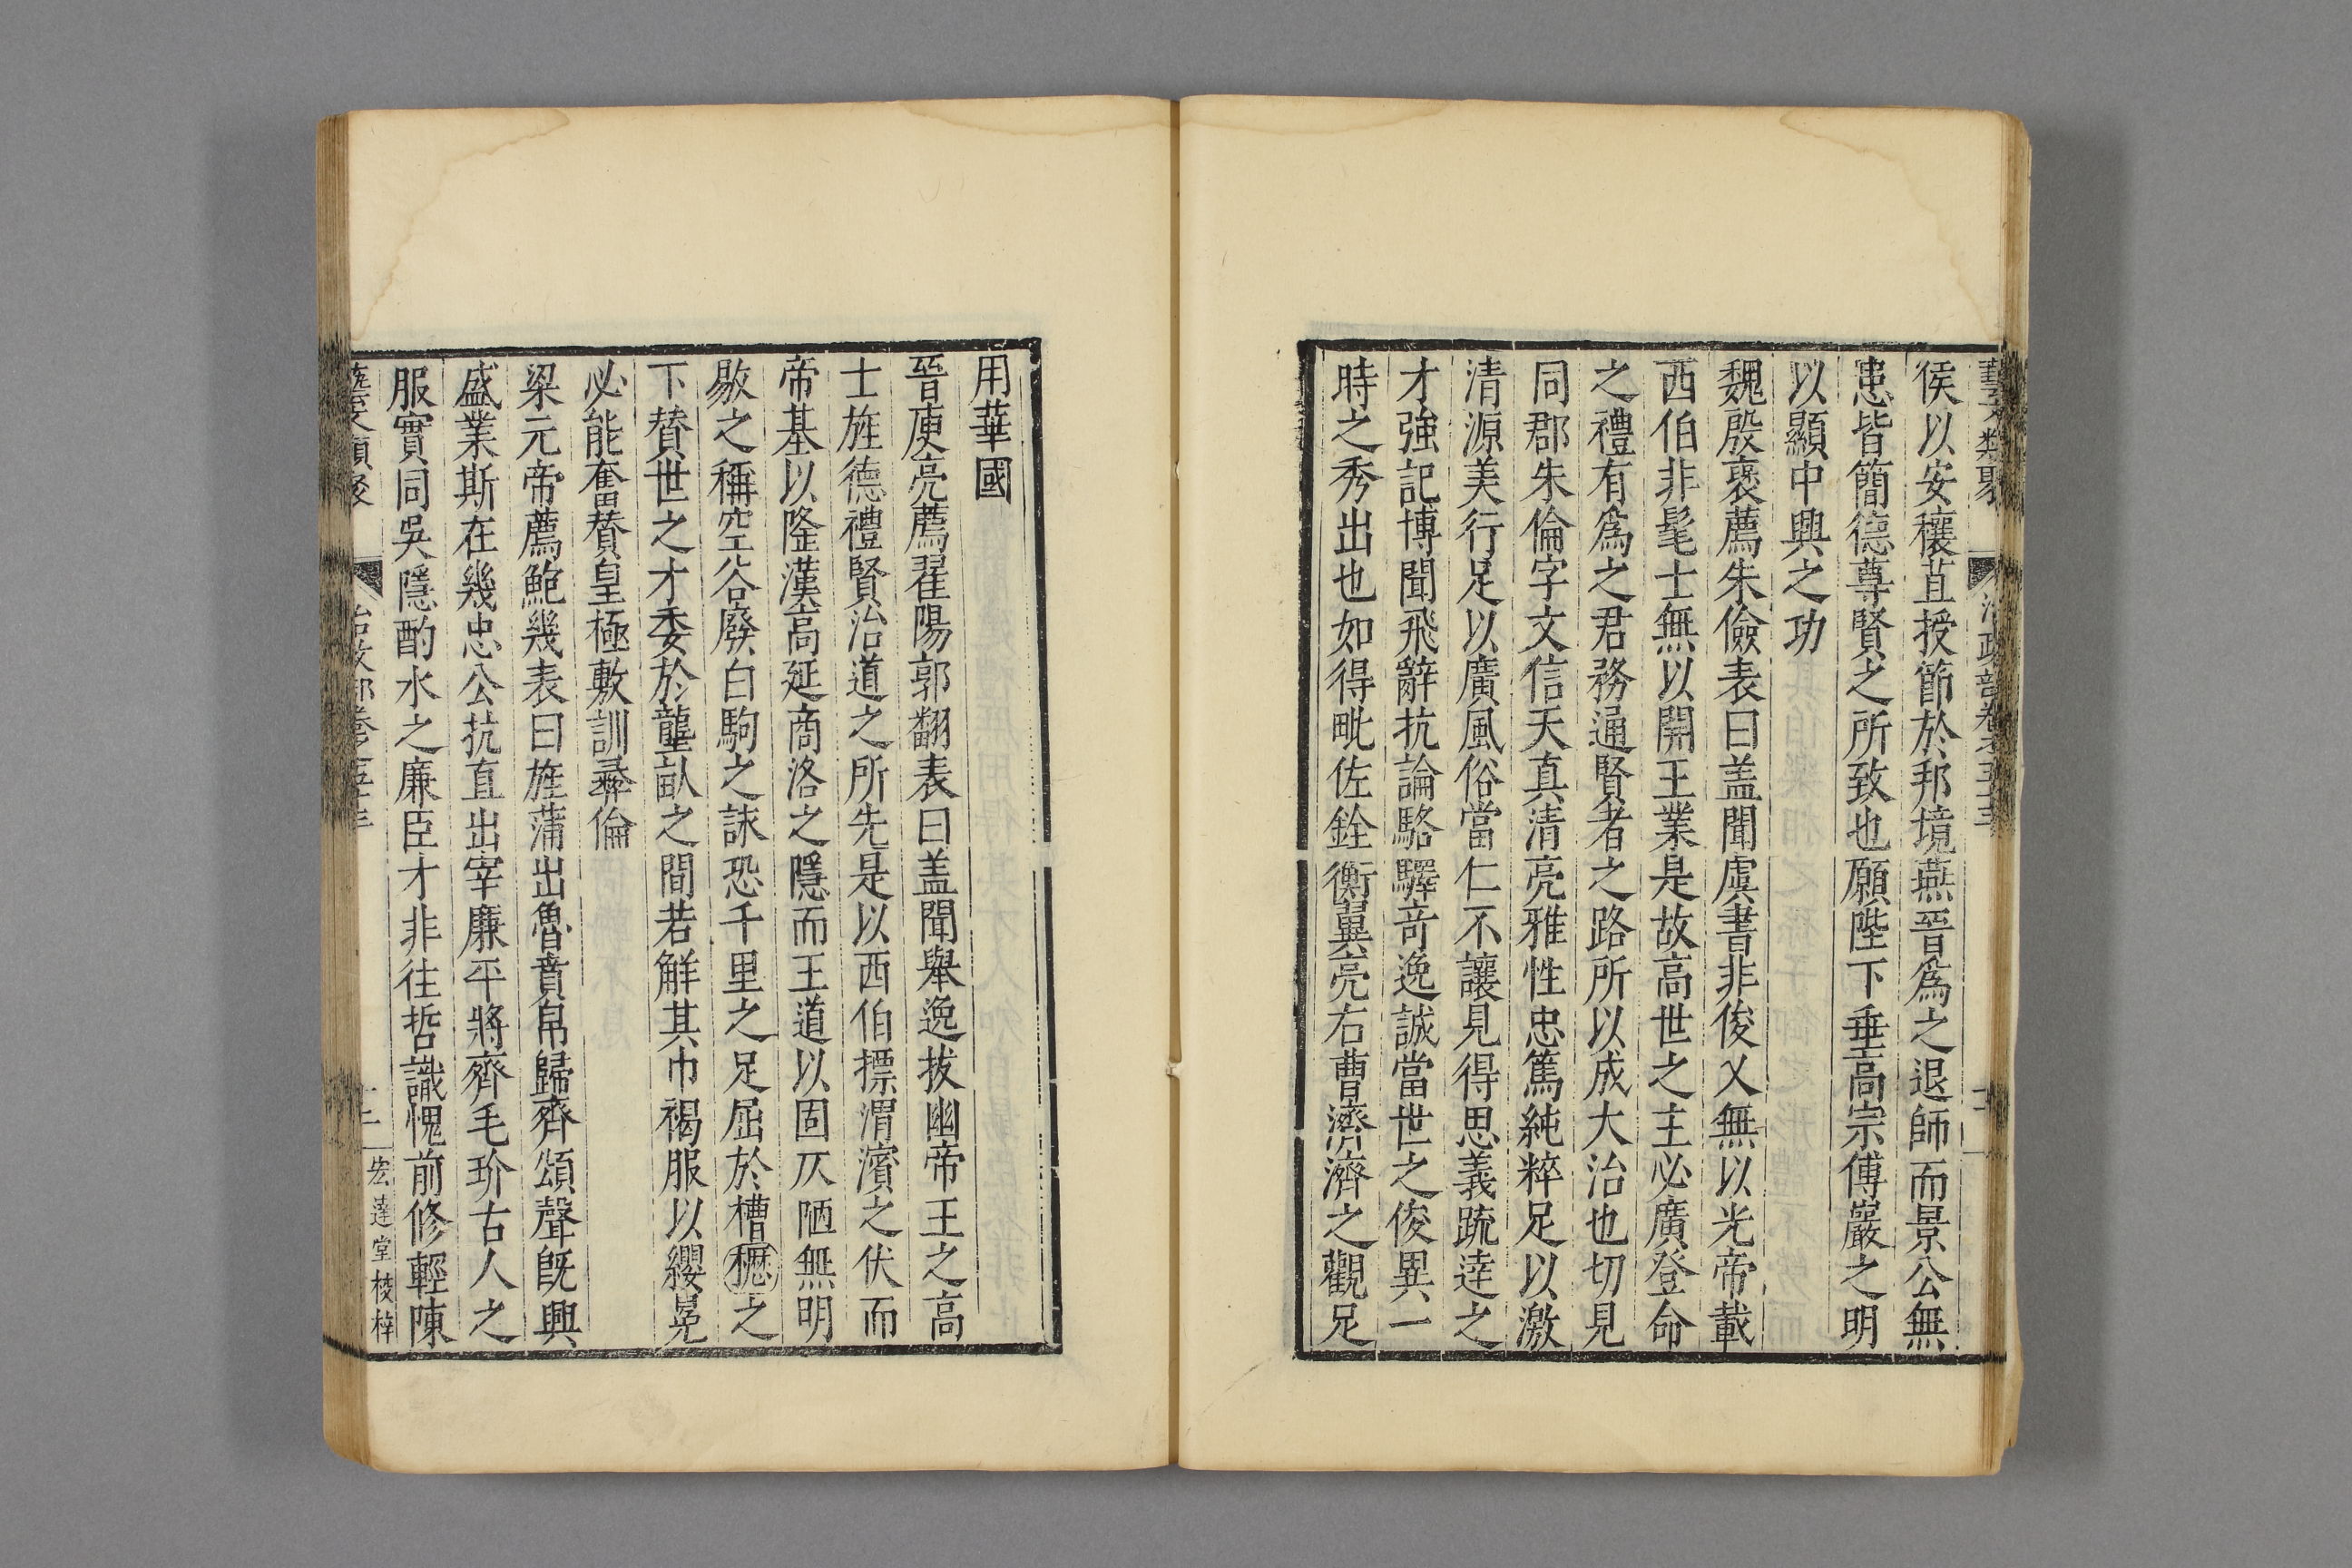 侯以安穰苴授節於邦境燕晉爲之退師而景公無
患皆簡德尊賢之所致也願陛下垂高宗傅巖之明
以顯中興之功
魏殷褒薦朱儉表曰盖聞虞書非俊乂無以光帝載
西伯非髦士無以開王業是故高世之主必廣登命
之禮有爲之君務通賢者之路所以成大治也切見
同郡朱倫字文信天真清亮雅性忠篤純粹足以激
清源美行足以廣風俗當仁不讓見得思義䟽逹之
才強記博聞飛辭抗論駱驛竒逸誠當世之俊異一
時之秀出也如得毗佐銓衡翼亮右曹濟濟之觀足
用華國
晉庾亮薦翟陽郭翻表曰盖聞舉逸拔幽帝王之高
士旌德禮賢治道之所先是以西伯摽渭濱之伏而
帝基以隆漢高延商洛之隱而王道以固仄陋無明
敭之稱空谷廢白駒之詠恐千里之足屈於槽櫪之
下賛世之才委於壟畒之間若觧其巾褐服以纓冕
必能奮賛皇極敷訓彞倫
梁元帝薦鮑幾表曰旌蒲出魯賁帛歸齊頌聲旣興
盛業斯在幾忠公抗直出宰廉平將齊毛玠古人之
服實同吳隱酌水之廉臣才非徃哲識愧前修輕陳
宏逹堂